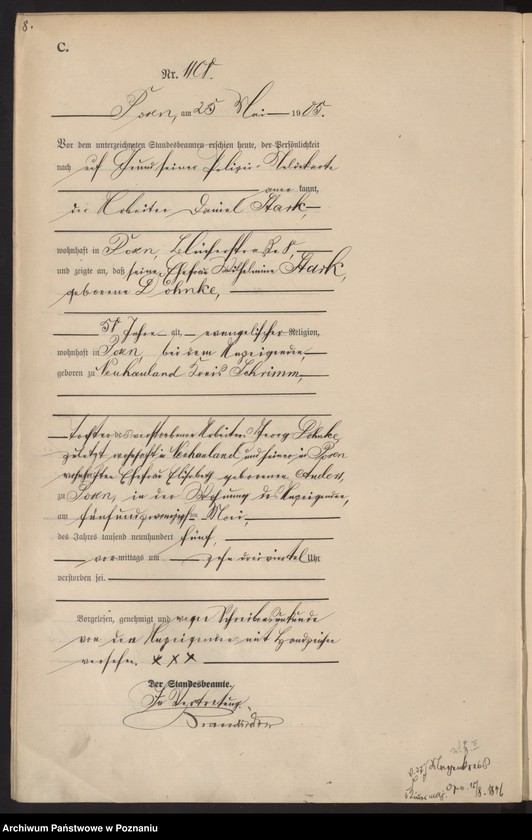 8.
C.
Nr. 1108.
Posen, am 25 Mai 1905.
Vor dem unterzeichneten Standesbeamten erschien heute, der Persönlichkeit
nach auf Grund seiner Polizei-Meldekarte
anerkannt,
der Arbeiter Daniel Stark,
wohnhaft in Posen, Blücherstraße 8,
und zeigte an, daß seine Ehefrau Wilhelmine Stark,
geborene Döhnke,
Jahre alt, evangelischer Religion,
wohnhaft in Posen, bei dem Anzeigenden
geboren zu Neuhauland Kreis Schrimm,
Tochter des verstorbenen Arbeiters Georg Döhnke,
zuletzt wohnhaft in Neuhauland und seiner in Posen
wohnhaften Ehefrau Elisabeth geborenen
zu Posen, in der Wohnung des Anzeigenden,
am fünfundzwanzigsten Mai,
des Jahres tausend neunhundert fünf,
vormittags um zehn dreiviertel Uhr
verstorben sei.
Vorgelesen, genehmigt und wegen Schreibensunkunde
von dem Anzeigenden mit Handzeichen
versehen. x x x
Der Standesbeamte.
In Vertretung.
Archiwum Państwowe w Poznaniu